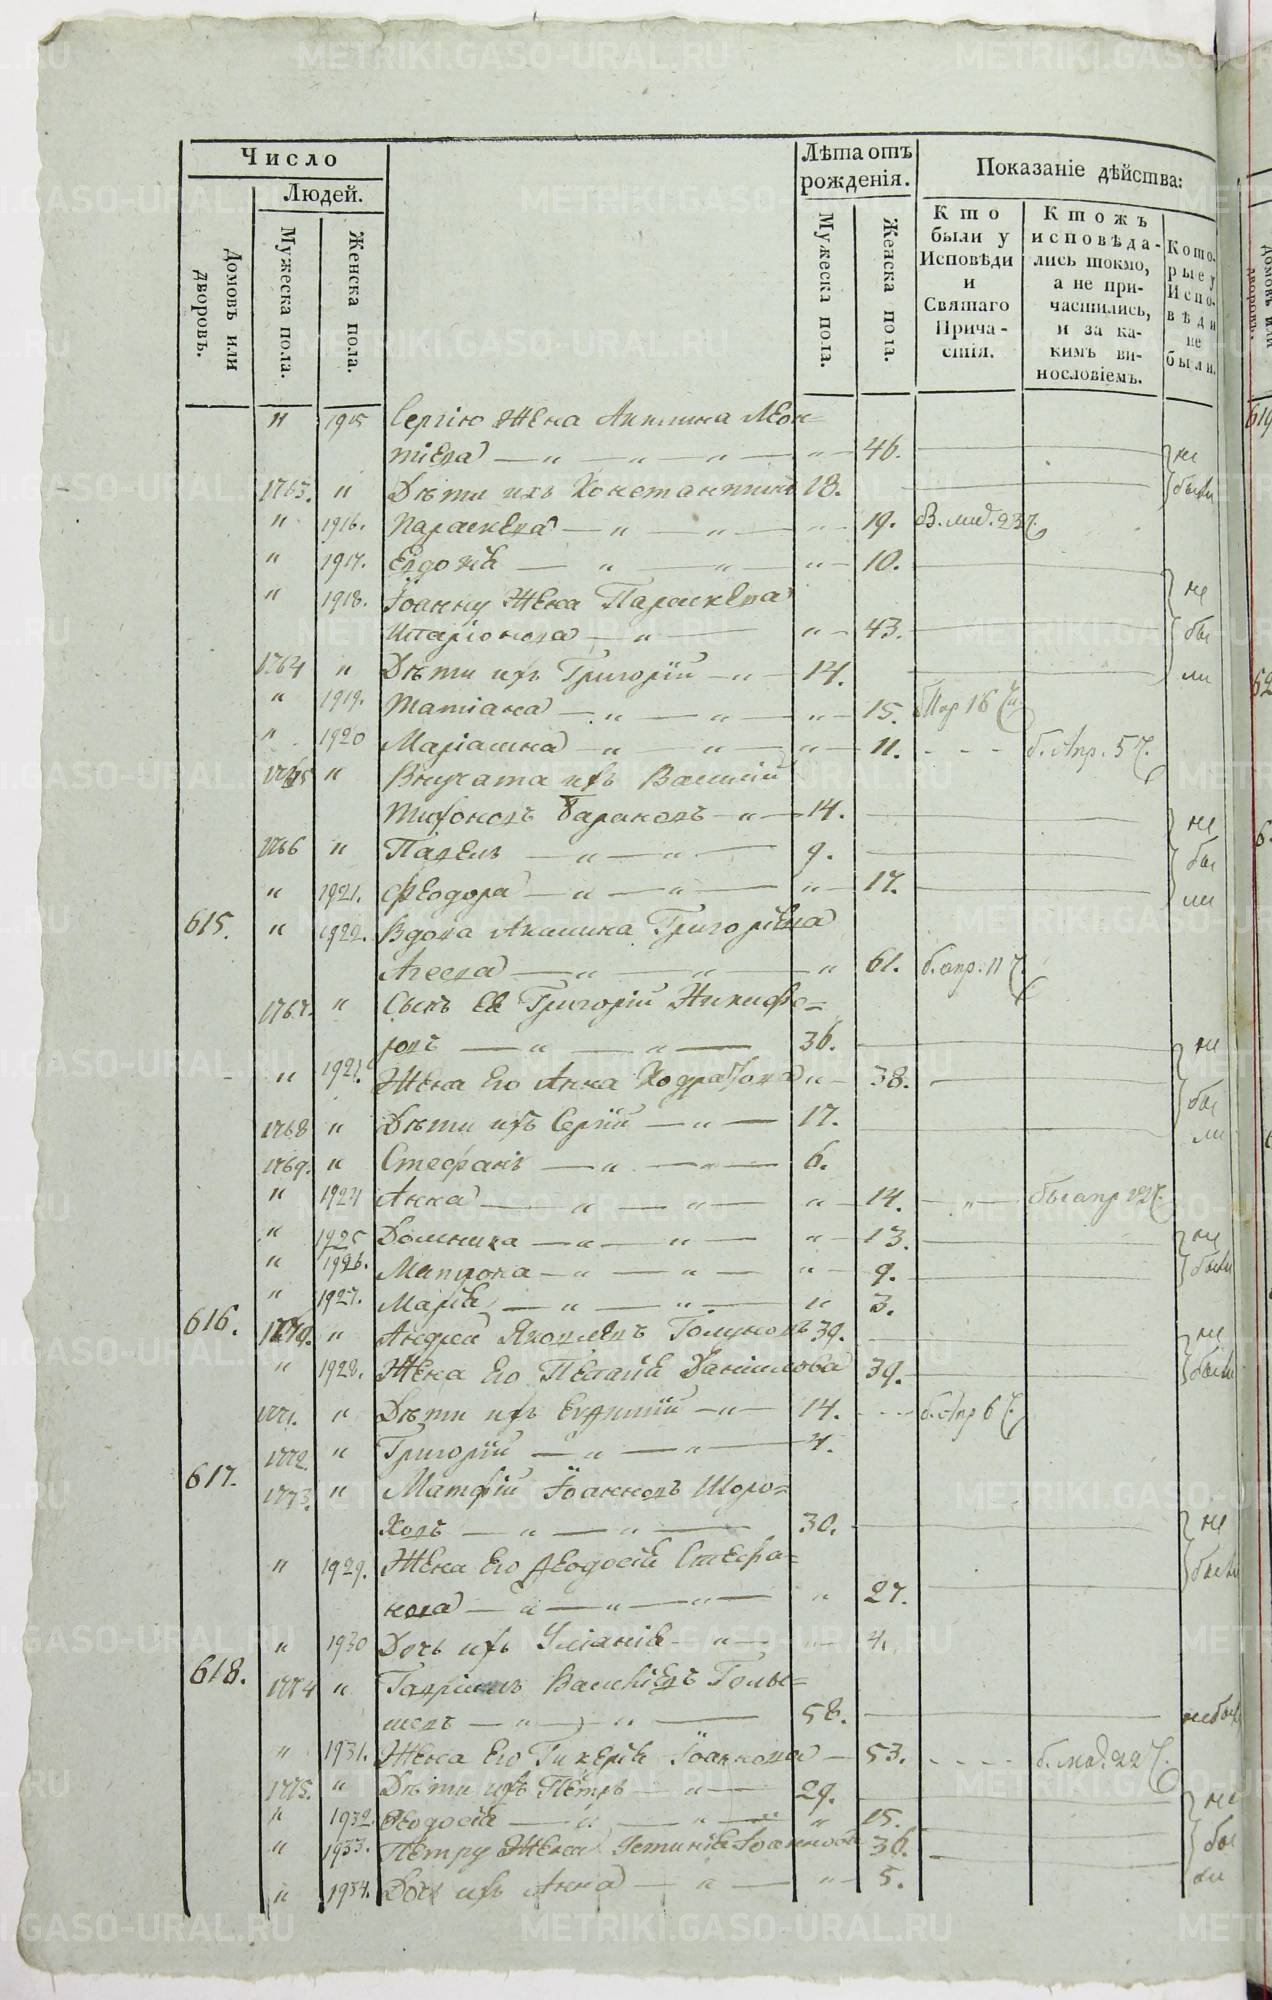 Число
Людей.
Домовъ или дворовъ.
Мужеска пола.
Женска пола.
Лѣта отъ рожденія.
Мужеска пола.
Женска пола.
Показаніе дѣйства:
Кто были у Исповѣди и Святаго Причастія.
Ктожъ исповѣдались токмо, а не причастились, и за какимъ винословіемъ.
Которые у Исповѣди не были.
" 1915 Сергію жена Акилина Леон=
тіева — " — " — " — " — 46. не
1763. " Дѣти ихъ Константинъ 18. были
" 1916. Параскева — " — " — " — 19.
" 1917. Евдокія — " — " — " — 10.
" 1918. Іоанну жена Параскева не
Иларіонова — " — " — 43. бы
1764 " Дѣти ихъ Григорій — " — 14. ли
" 1919. Татіана — " — " — " — 15.
" 1920 Маріамна — " — " — " — 11. б. Апр. 5 ч.
1765 " Внучата ихъ Василій
Тихоновъ Барановъ — " — 14. не
1766 " Павелъ — " — " — 9. бы
" 1921. Феодора — " — " — " — 17. ли
615. " 1922. Вдова Акилина Григорьева
Агеева — " — " — " 61. б. апр. 11 ч.
1767. " Сынъ ея Григорій Никифо=
ровъ — " — " — 36. не
" 1923. Жена его Анна " — 38.
1768 " Дѣти ихъ Сергій — " — 17. бы
1769. " Стефанъ — " — " — 6. ли
" 1924 Анна — " — " — " — 14. — " —
" 1925 Домника — " — " — " — 13. не
" 1926. Матрона — " — " — " — 9. были
" 1927. Марія — " — " — " 3.
616. 1770. " Андрей Яковлевъ 39. не
" 1928. Жена его Пелагія Даниилова 39. были
1771. " Дѣти ихъ — " — 14. б. Апр 6 ч.
1772. " Григорій — " — " — 4.
617. 1773. " Матфій Іоанновъ Шоро=
ховъ — " — " — 30. не
" 1929. Жена его Феодосія Стефа= были
нова — " — " — " — " 27.
" 1930 Дочь ихъ Уліанія — " — " — 4.
618. 1774 " Гавріилъ Васильевъ Голы=
шевъ — " — " — 58. не были
" 1931. Жена его Гликерія Іоаннова — 53.
1775. " Дѣти ихъ Петръ — " — 29. не
" 1932. Феодосія — " — " — " 15.
" 1933. Петру жена Устинія Іоаннова 36. бы
" 1934. Дочь ихъ Анна — " — " — 5. ли
METRIKI.GASO-URAL.RU